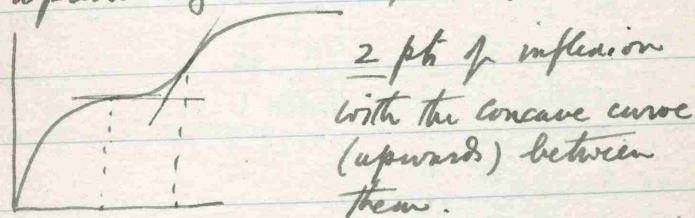 2 pts of inflexion
with the concave curve
(upwards) between
them.